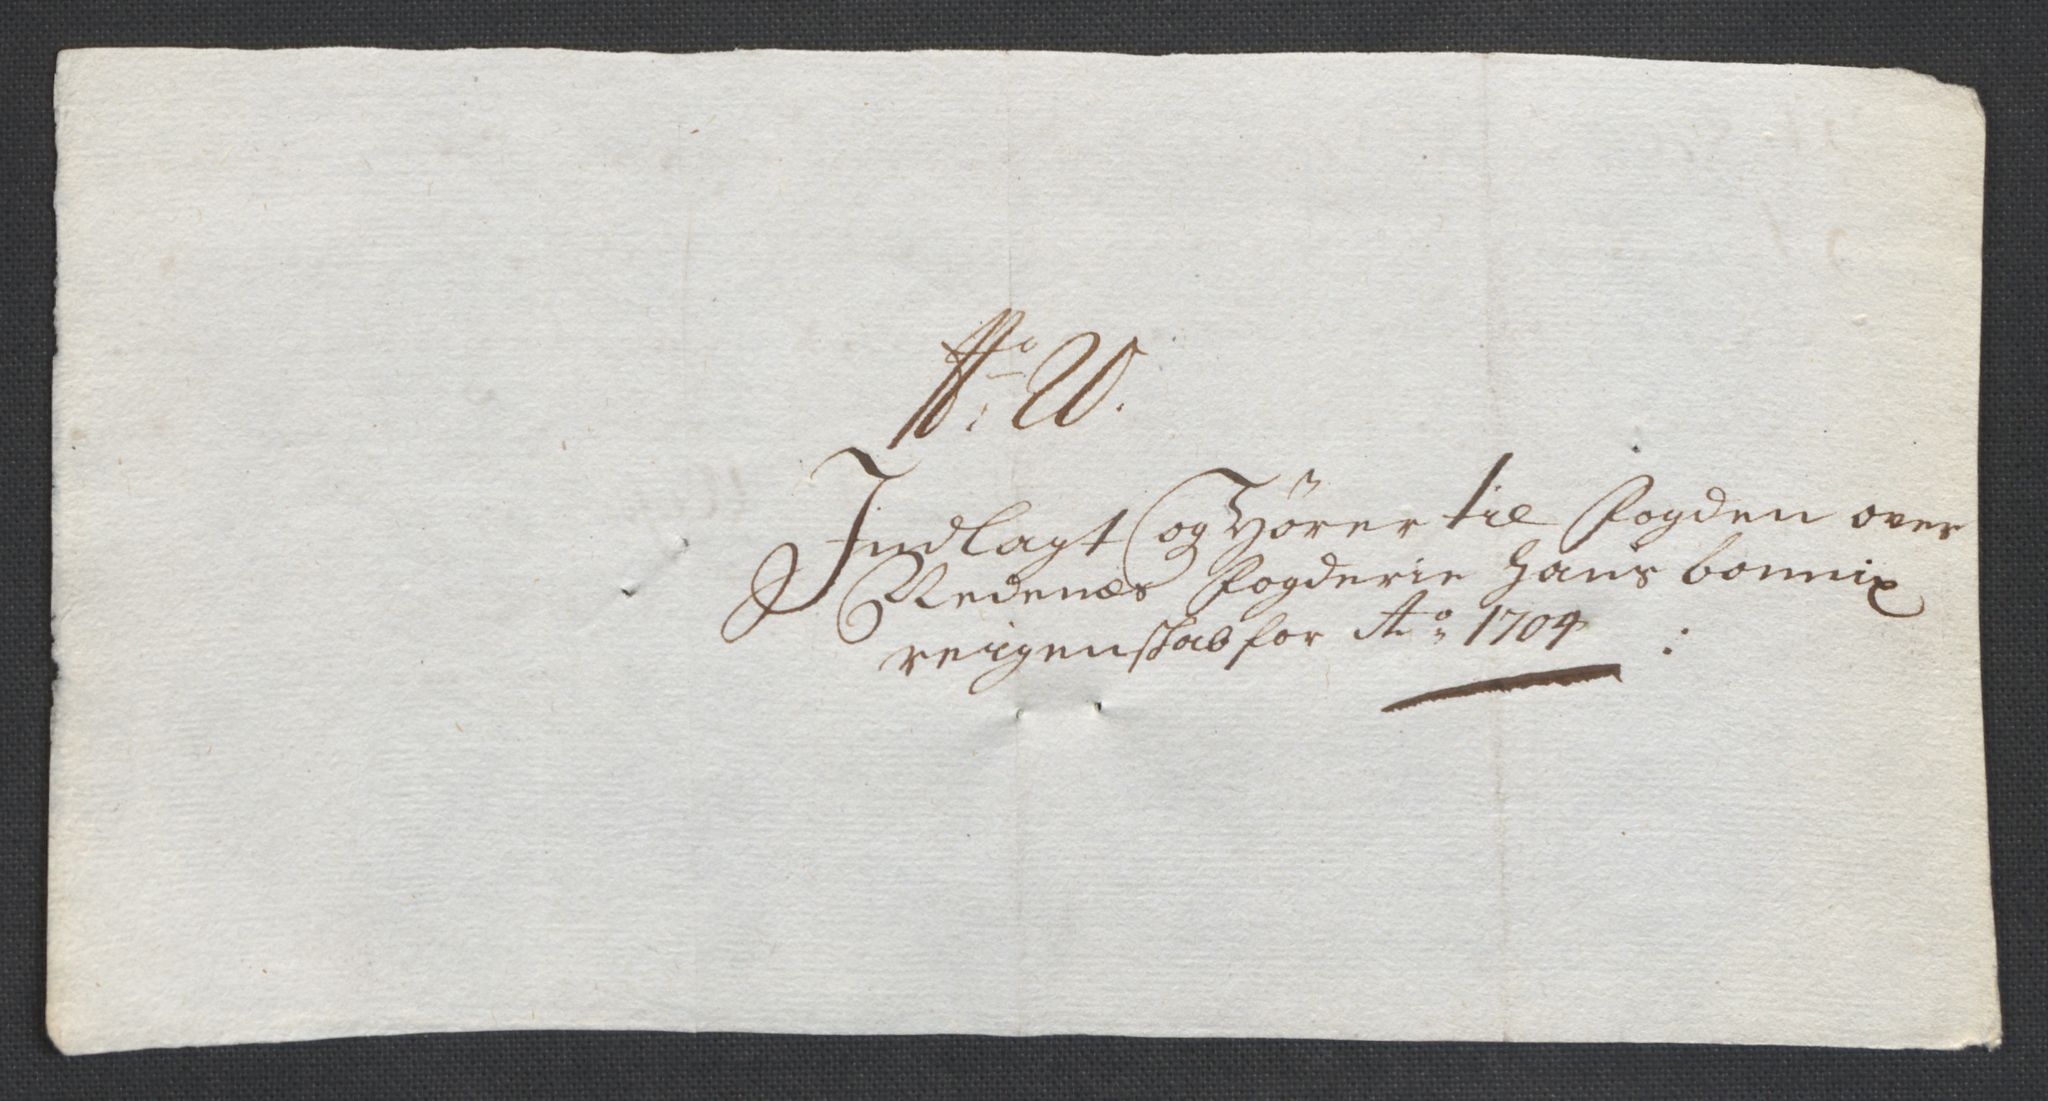 No: W.
Indlagt og Hører til Fogden over
Nedenæs Fogderie Hans bonnix
reigenskab for Ao: 1704 :